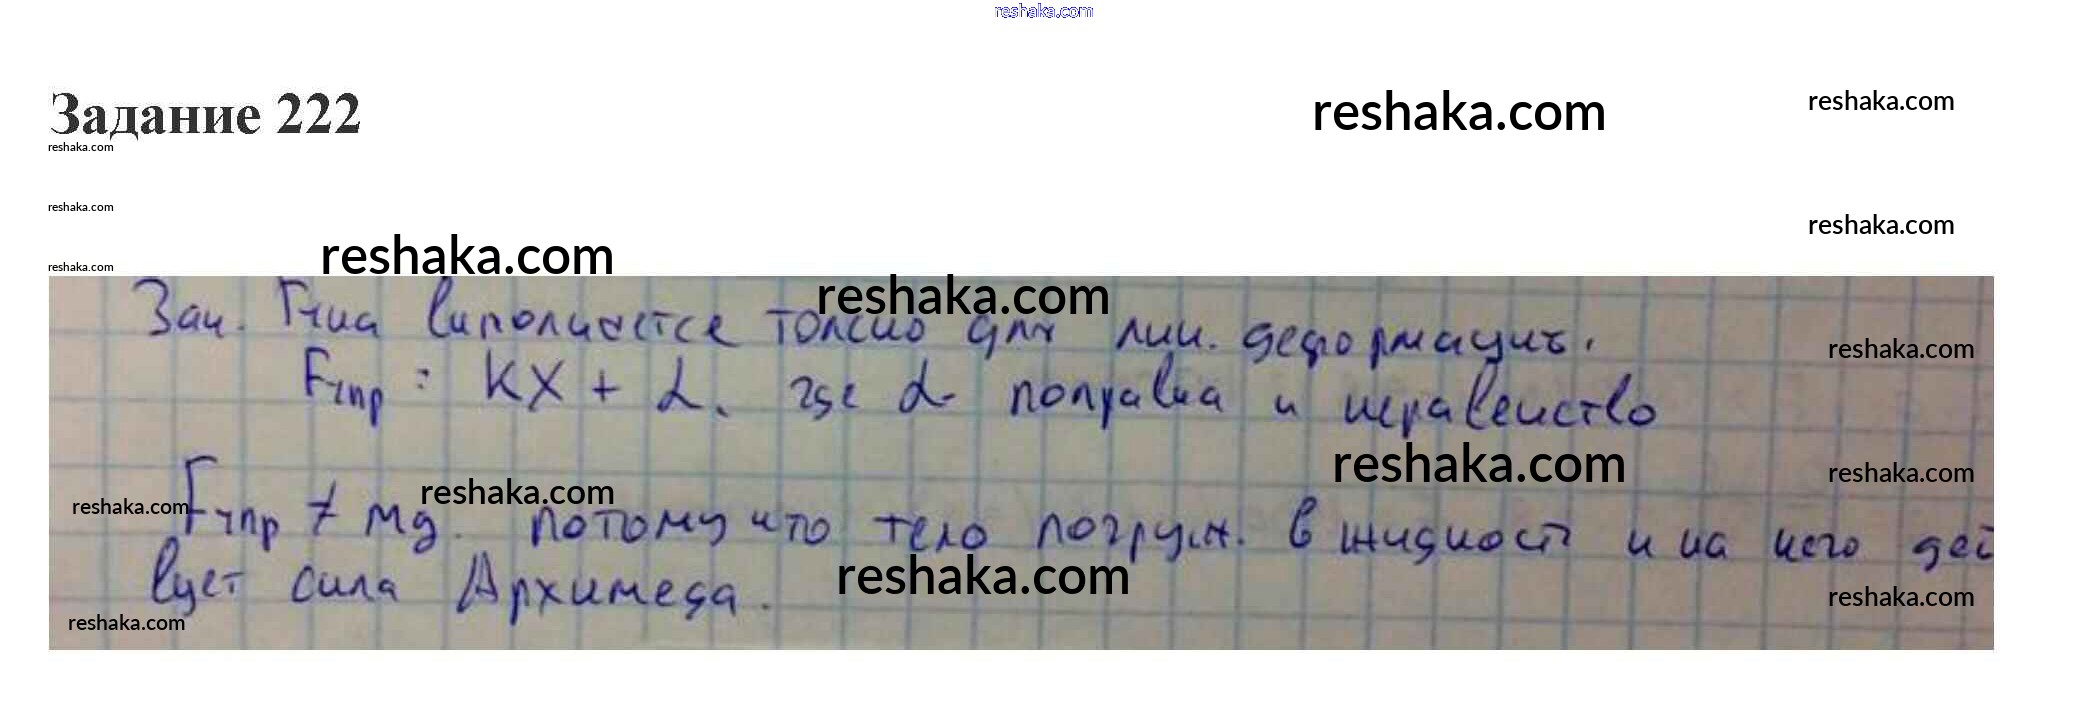 reshaka.com
Задание 222
reshaka.com
reshaka.com
reshaka.com
reshaka.com
reshaka.com
reshaka.com
reshaka.com
reshaka.com
Зак. Гука выполняется только для лин. деформации.
reshaka.com
Fупр = kx + α, где α - поправка и неравенство
reshaka.com
reshaka.com
reshaka.com
reshaka.com
Fупр ≠ mg. потому что тело погруж. в жидкость и на него дей
reshaka.com
вует сила Архимеда.
reshaka.com
reshaka.com